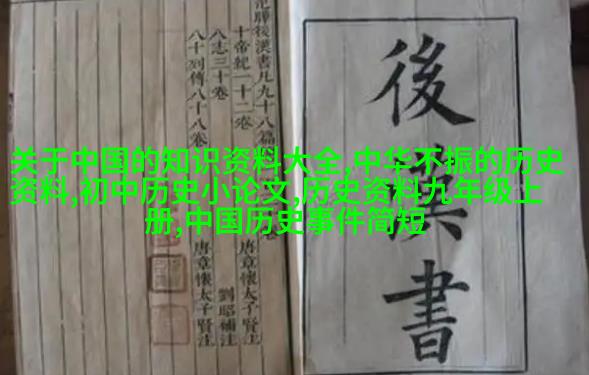 关于中国的知识资料大全,中华不振的历史
资料,初中历史小论文,历史资料九年级上
册,中国历史事件简短
後漢書
曄後漢書凡九十八篇
十帝紀一十二卷
唐章懷太子賢注
八志三十卷
劉昭補注
八十列傳八十八卷
唐章懷太子賢注